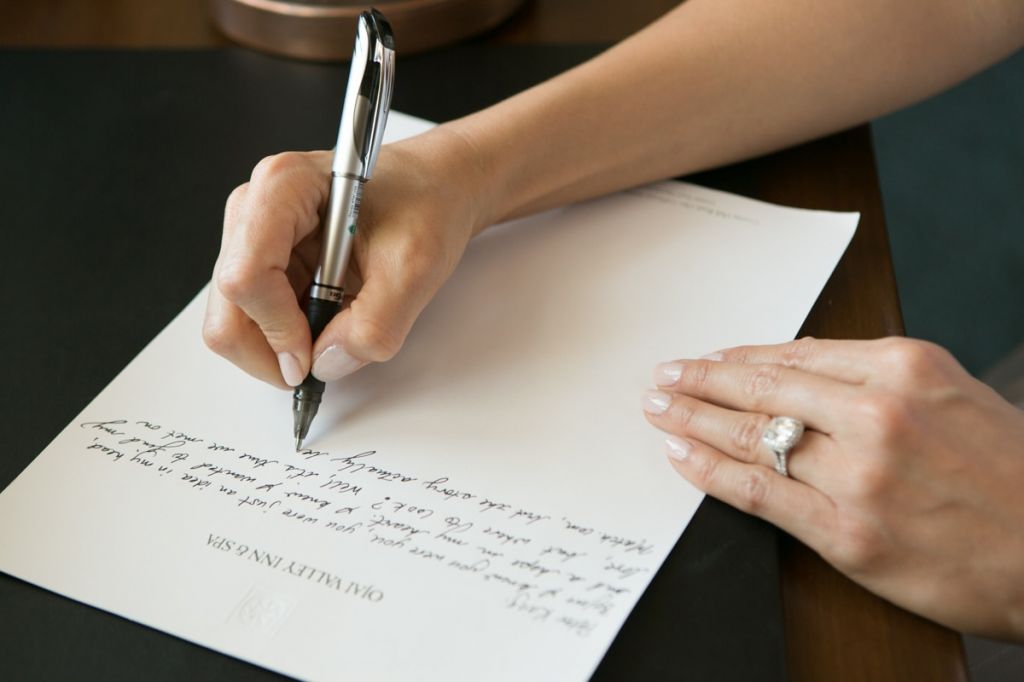 OJAI VALLEY INN & SPA
Before you were you, you were just an idea in my head,
and a hope in my heart. I knew I wanted to find my
love, but where to look? Well it's true we met on
Match.com, but the story actually is